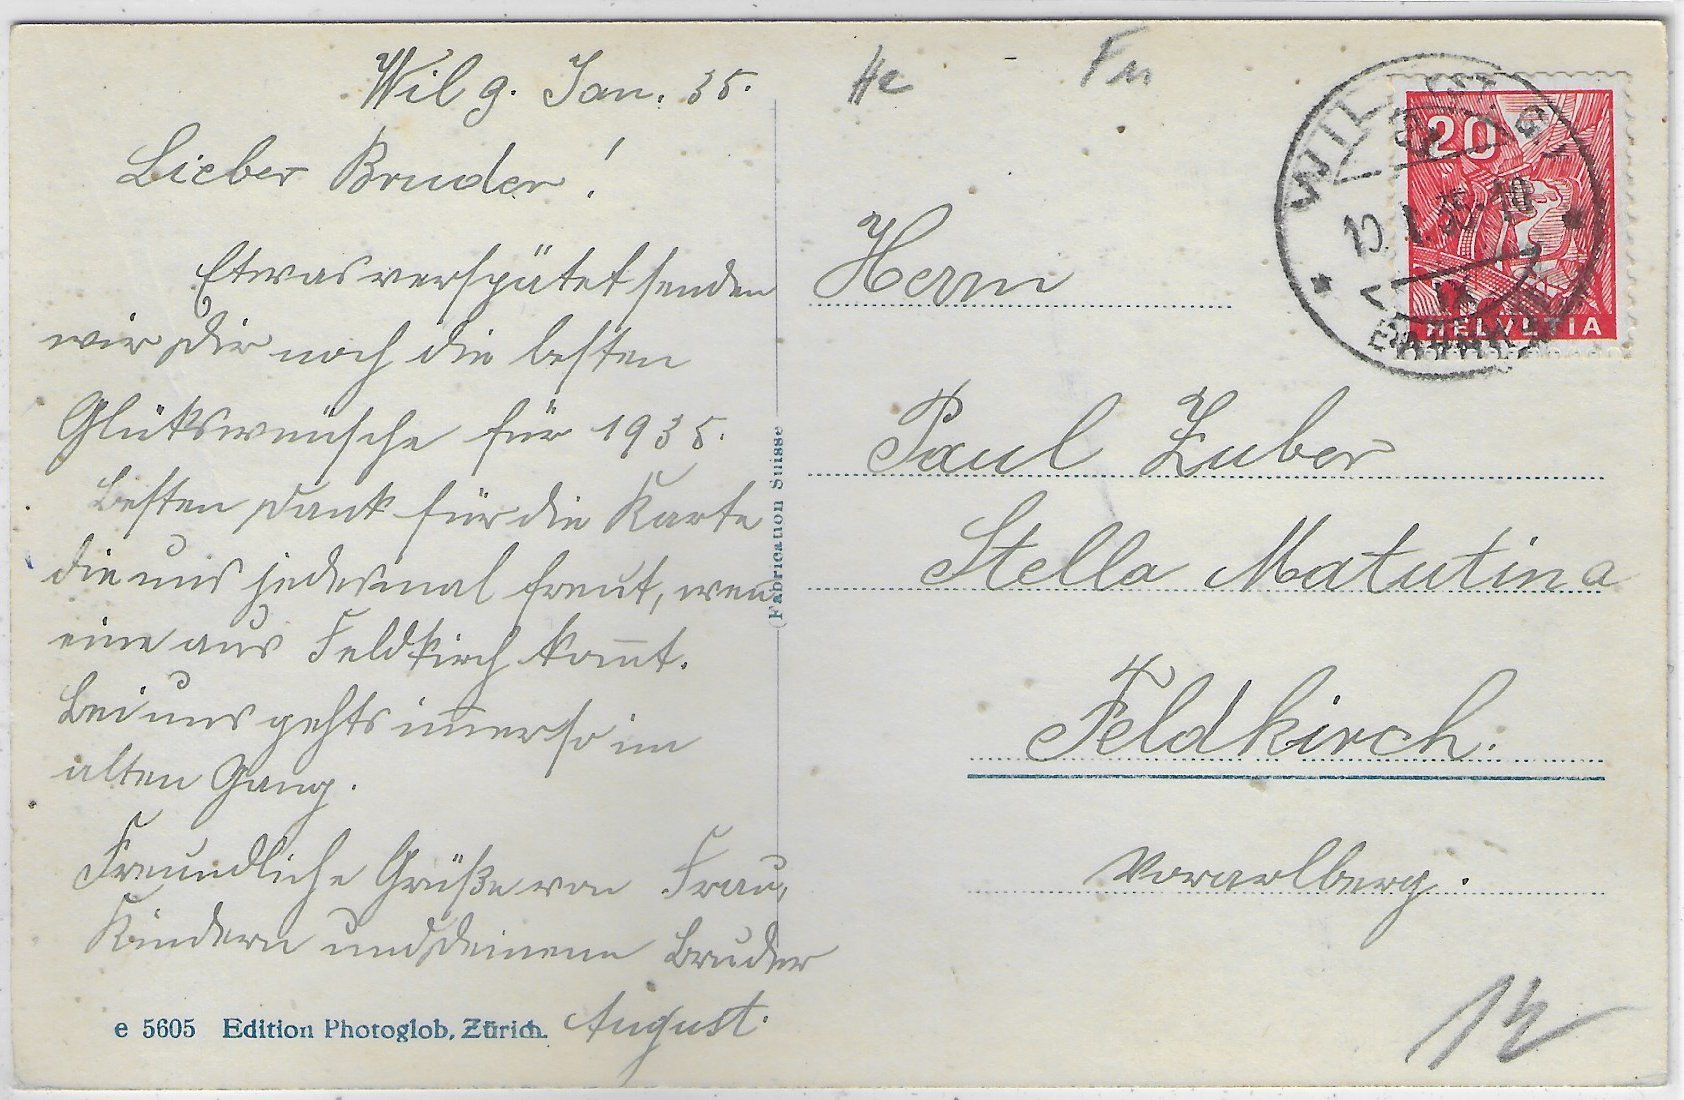 Wil 9. Jan. 35.
Lieber Bruder!
Etwas verspätet senden
wir Dir noch die besten
Glükswünsche für 1935.
Besten Dank für die Karte
die uns jedesmal freut, wen̄
eine aus Feldkirch kom̄t.
Bei uns gehts im̄er so im
alten Gang.
Freundliche Grüße von Frau,
Kindern und Deinem Bruder
August.
e 5605 Edition Photoglob, Zürich.
(Fabrication Suisse)
He - Fn
WIL (ST. G.)
10.I.35-10
20
HELVETIA
Herrn
Paul Zuber
Stella Matutina
Feldkirch.
Vorarlberg.